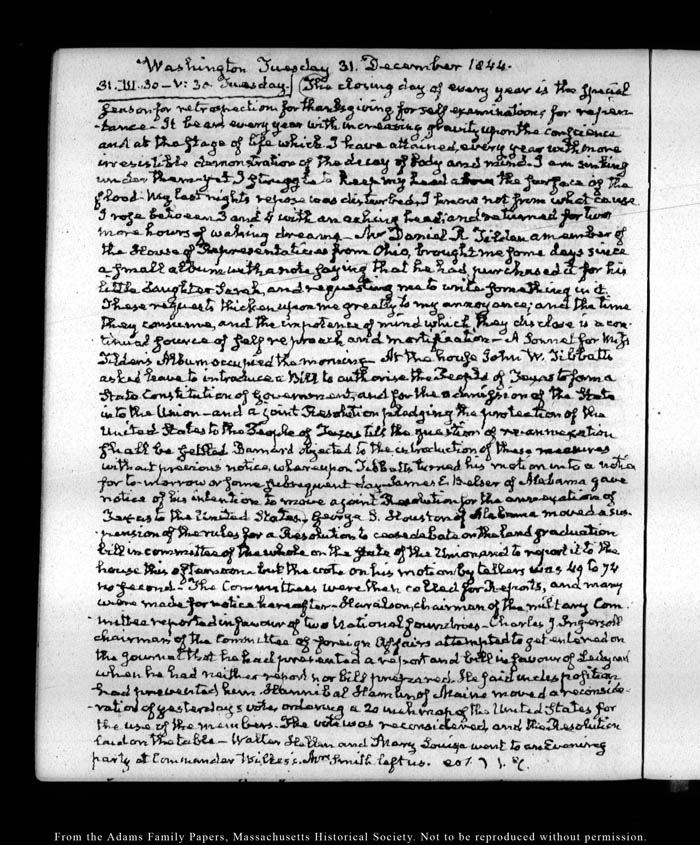 Washington Tuesday 31. December 1844.
31. III.30 – V:30 Tuesday. The closing day of every year is the special
season for retrospection for thanksgiving for self examination, for repen-
-tance – It bears every year with increasing gravity upon the conscience
and at the stage of life which I have attained, every year with more
irresistible demonstration of the decay of body and mind. I am sinking
under them – yet I struggle to keep my head above the surface of the
flood. My last nights repose was disturbed, I know not from what cause
I rose between 3 and 4 with an aching head, and returned for two
more hours of waking dreams – Mr Daniel R. Tilden a member of
the House of Representatives from Ohio, brought me some days since
a small album, with a note saying that he had purchased it for his
little daughter Sarah, and requesting me to write something in it.
These requests thicken upon me greatly to my annoyance, and the time
they consume, and the impotence of mind which they disclose is a con-
tinual source of self reproach and mortification – A Sonnet for Miss
Tilden's Album occupied the morning – At the house John W. Tibbatts
asked leave to introduce a Bill to authorise the People of Texas to form a
State Constitution of Government, and for the admission of the State
into the Union – and a joint Resolution pledging the protection of the
United States to the People of Texas till the question of re-annexation
shall be settled Barnard objected to the introduction of these measures
without previous notice, whereupon Tibbatts turned his motion into a notice
for to-morrow or some subsequent day – James E. Belser of Alabama gave
notice of his intention to move a joint Resolution for the annexation of
Texas to the United States. George S. Houston of Alabama moved a sus-
-pension of the rules for a Resolution to cease debate on the land graduation
bill in committee of the whole on the State of the Union and to report it to the
house this afternoon but the vote on his motion by tellers was 49 to 74
no second – The Committees were then called for Reports, and many
were made for notice hereafter – Haralson, chairman of the military Com-
mittee reported in favour of two National foundries – Charles J. Ingersoll
chairman of the Committee of foreign Affairs attempted to get entered on
the journal that he had presented a report and bill in favour of
when he had neither report nor bill prepared. He said indisposition
had prevented him. Hannibal Hamlin of Maine moved a reconside-
-ration of yesterday's vote, ordering a 20 inch map of the United States for
the use of the members. The vote was reconsidered and the Resolution
laid on the table – Walter Hellen and Mary Louisa went to an Evening
party at Commander Wilkes's. Mrs Smith left us.
From the Adams Family Papers, Massachusetts Historical Society. Not to be reproduced without permission.